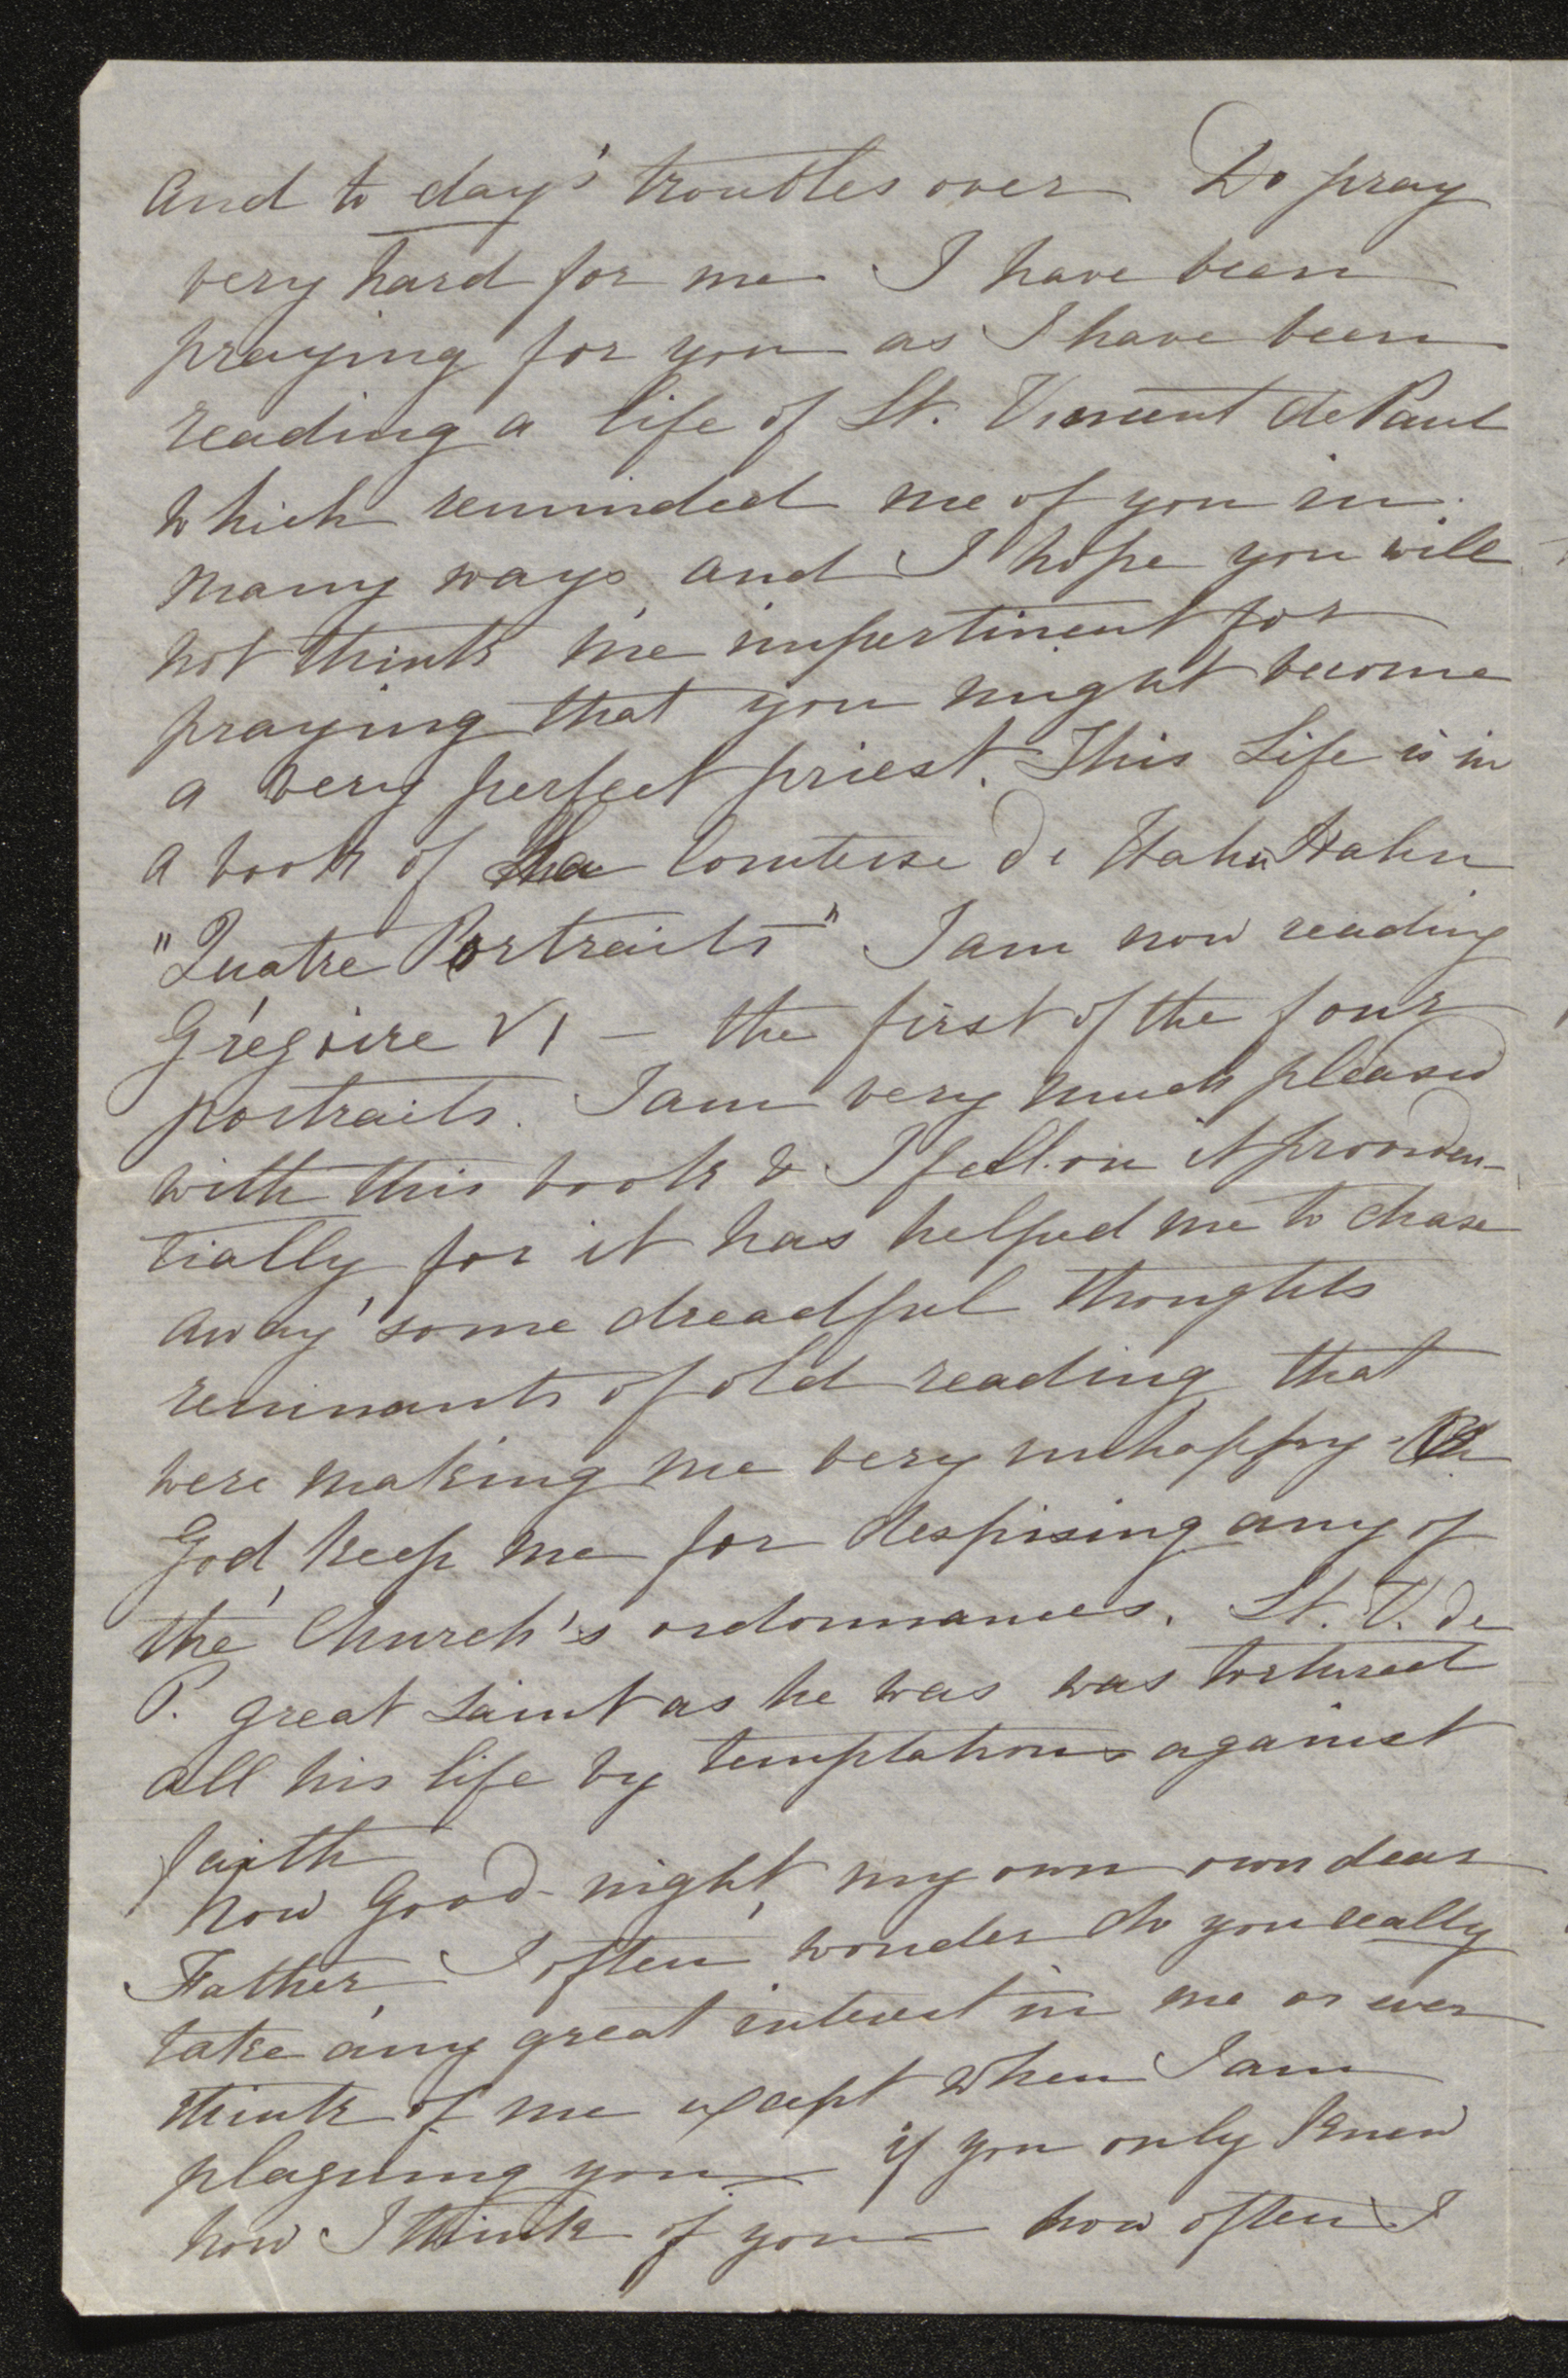 and to day's troubles over Do pray
very hard for me I have been
praying for you as I have been
reading a life of St. Vincent de Paul
which reminded me of you in
many ways and I hope you will
not think me impertinent for
praying that you might become
a very perfect priest. This Life is in
a book of the Comtesse de Hahn Hahn
"Quatre Portraits" I am now reading
Grégoire VI — the first of the four
portraits. I am very much pleased
with this book & I fell on it providen-
tially for it has helped me to chase
away some dreadful thoughts
remnants of old reading that
were making me very unhappy.
God keep me for despising any of
the Church's ordonnances. St. V. de
P. great Saint as he was was tortured
all his life by temptations against
faith
now Good-night my own own dear
Father I often wonder do you really
take any great interest in me or ever
think of me except when I am
plaguing you — if you only knew
how I think of you — how often I